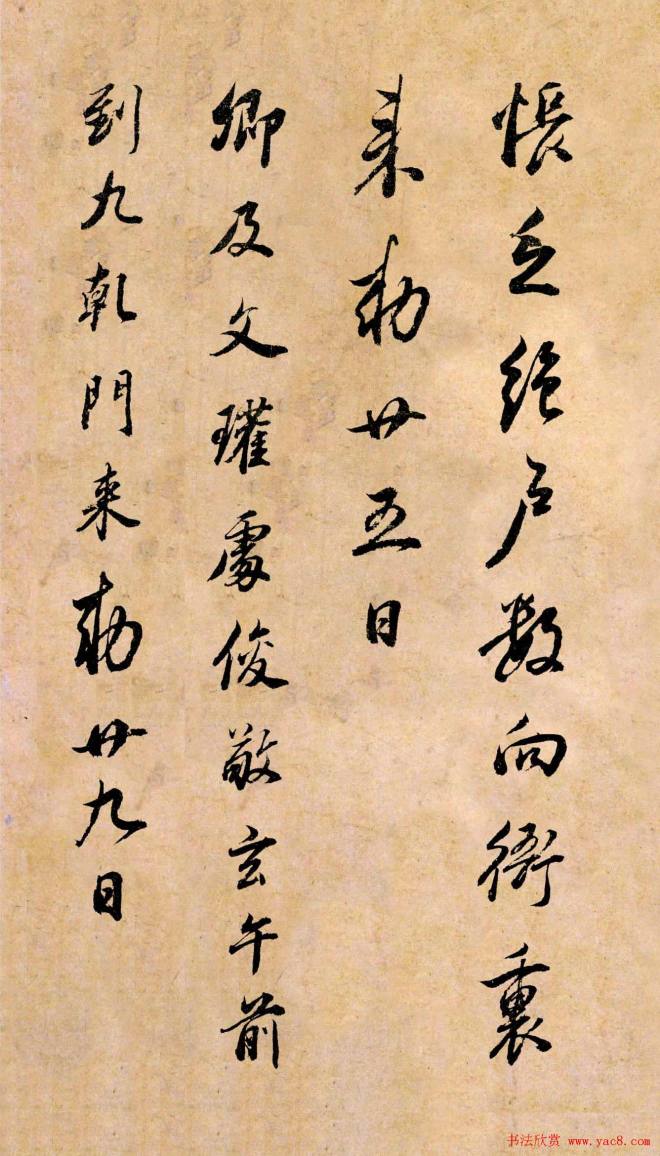 悵之絶户数向衙裏
来勅廿五日
卿及文瓘處俊敬玄午前
到九乹門来勅廿九日
书法欣赏 www.yac8.com